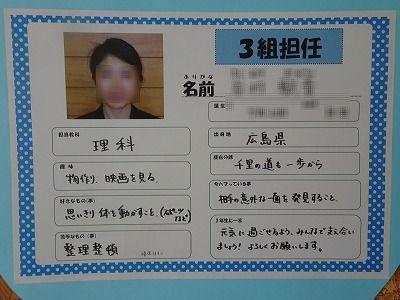 3組担任
ふりがな
名前
担当教科
理科
出身地
広島県
趣味
物作り、映画を見る。
座右の銘
千里の道も一歩から
好きなもの(事)
思いきり体を動かすこと。
今ハマっている事
相手の意外な一面を発見すること。
苦手なもの(事)
整理整頓
1年生に一言
元気に過ごせるよう、みんなで支え合い
ましょう! よろしくお願いします。